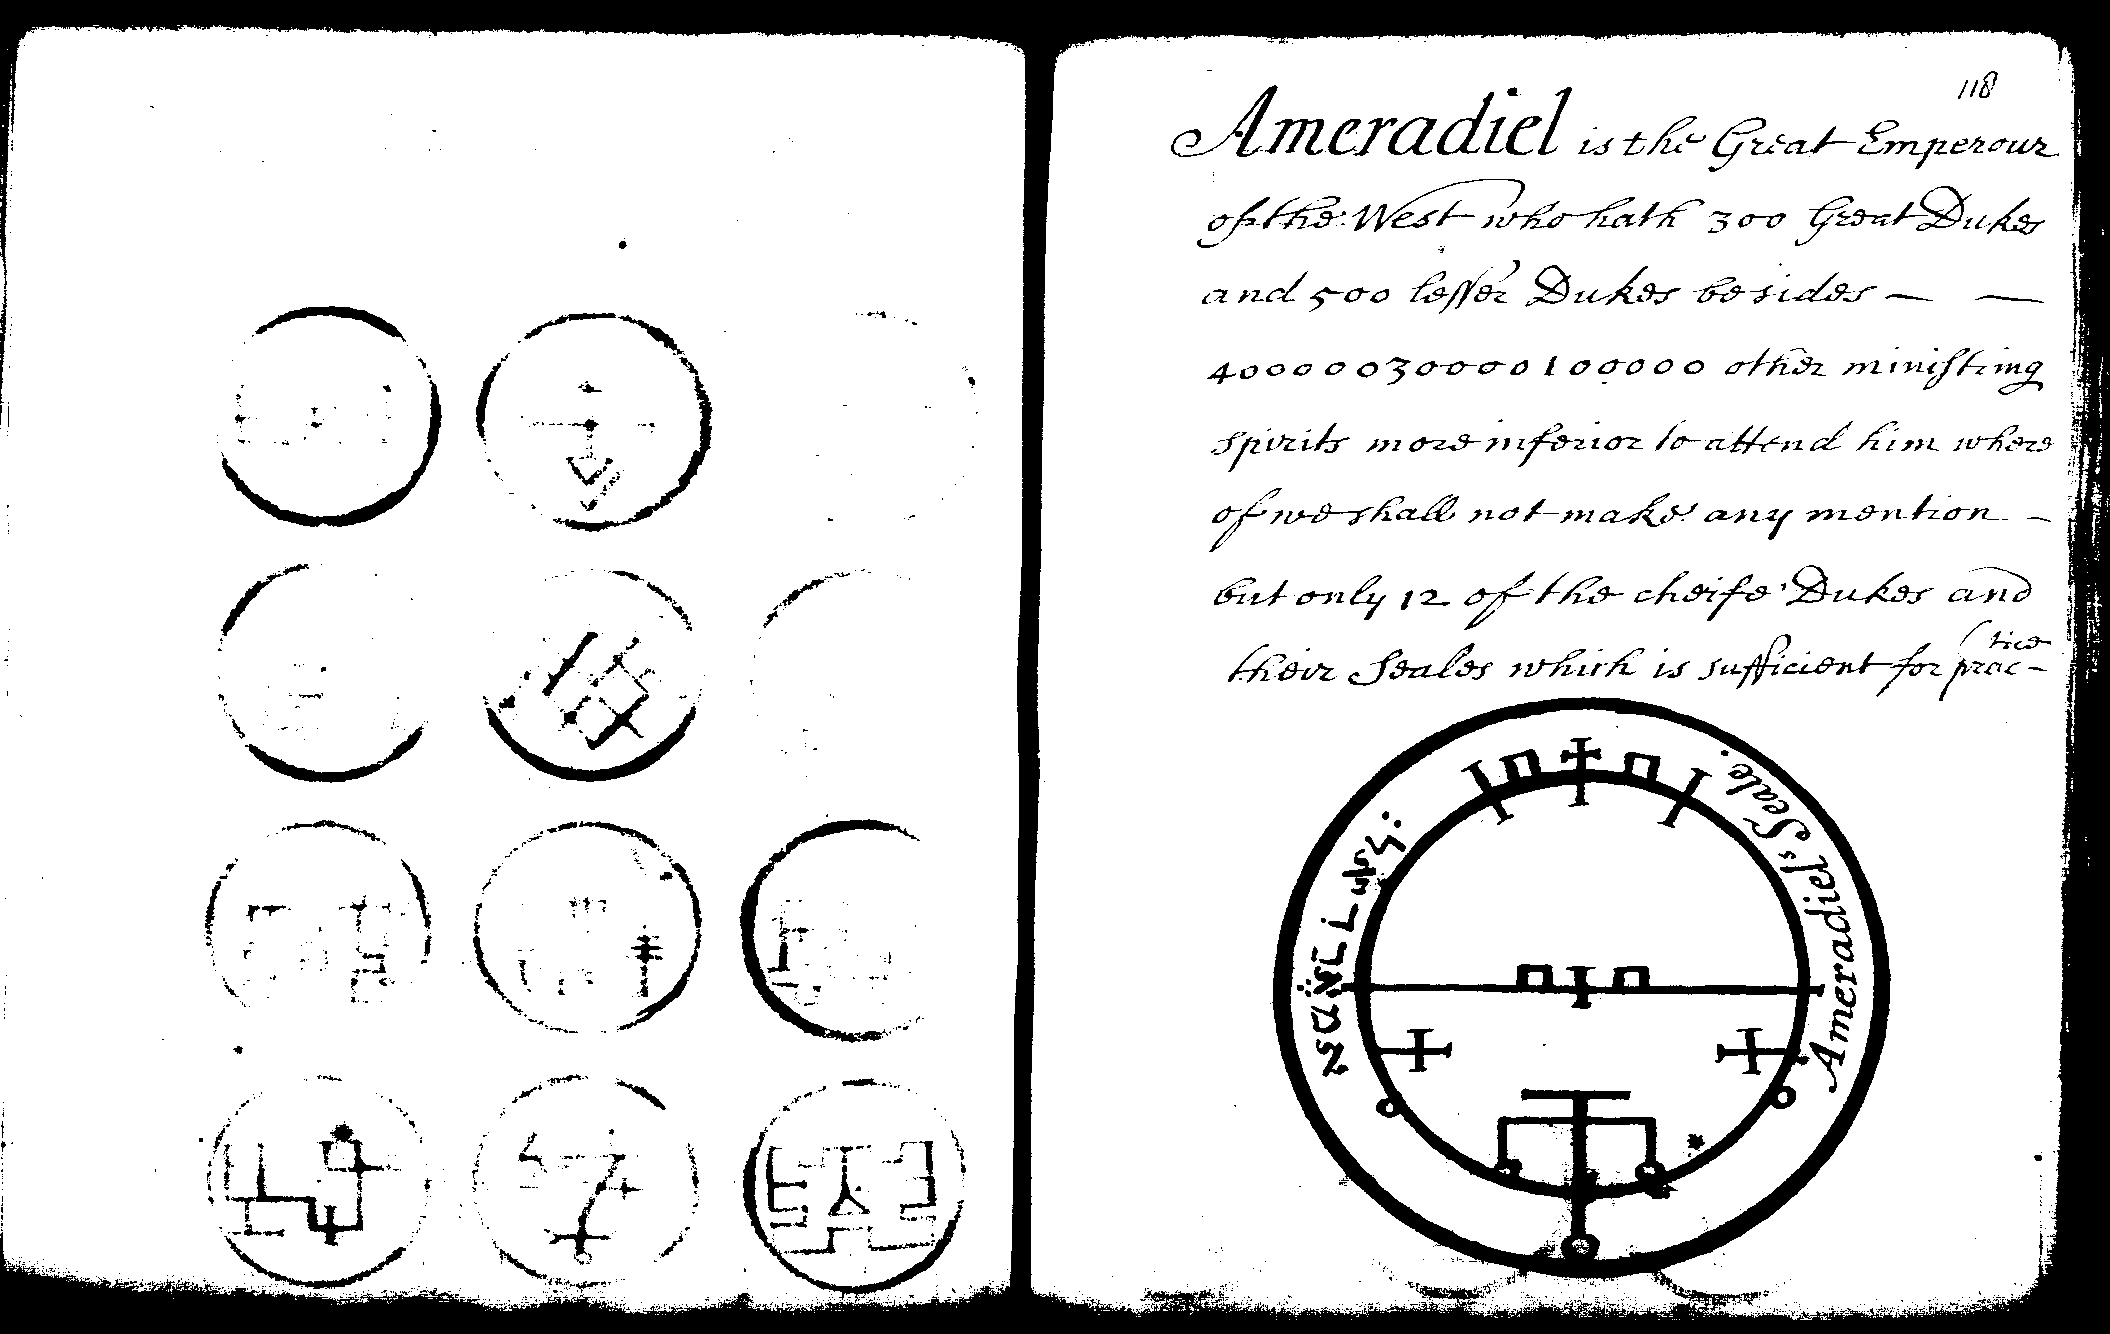 118
Ameradiel is the Great Emperour
of the West who hath 300 Great Dukes
and 500 lesser Dukes besides — —
40000030000100000 other ministring
spirits more inferior to attend him where
of we shall not make any mention –
but only 12 of the cheife Dukes and
their Seales which is sufficient for prac-
(tice
Ameradiel's Seale.